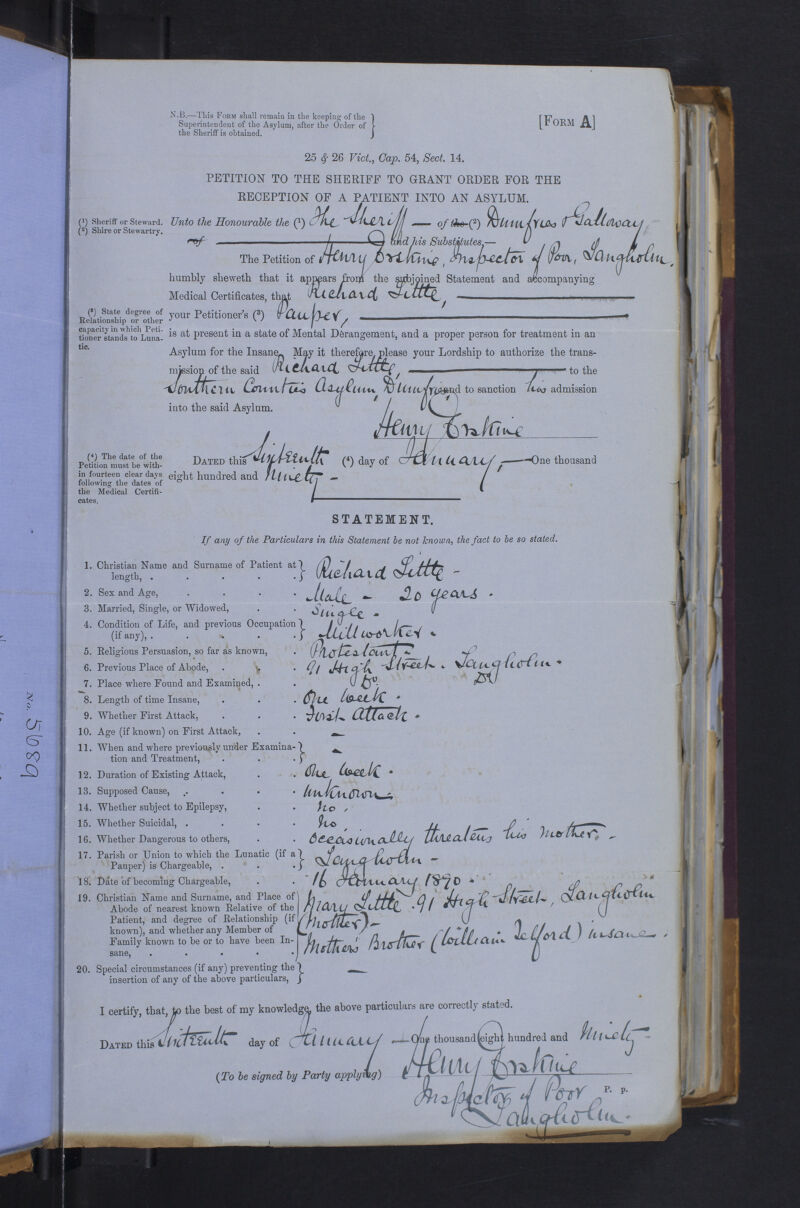 N.B.—This Form shall remain in the keeping of the
Superintendent of the Asylum, after the Order of
the Sheriff is obtained.
[Form A]
25 & 26 Vict., Cap. 54, Sect. 14.
PETITION TO THE SHERIFF TO GRANT ORDER FOR THE
RECEPTION OF A PATIENT INTO AN ASYLUM.
(1) Sheriff or Steward.
(2) Shire or Stewartry.
Unto the Honourable the (1) The Sheriff — of the (2) Dumfries & Galloway
of — and his Substitutes,—
The Petition of Henry Erskine, Inspector of Poor, Langholm.
humbly sheweth that it appears from the subjoined Statement and accompanying
Medical Certificates, that Richard Little, —
(3) State degree of
Relationship or other
capacity in which Peti-
tioner stands to Luna-
tic.
your Petitioner's (3) Pauper, —
is at present in a state of Mental Derangement, and a proper person for treatment in an
Asylum for the Insane. May it therefore please your Lordship to authorize the trans-
mission of the said Richard Little, — to the
Southern Counties Asylum, Dumfries, and to sanction his admission
into the said Asylum.
Henry Erskine
(4) The date of the
Petition must be with-
in fourteen clear days
following the dates of
the Medical Certifi-
cates.
Dated this Sixteenth (4) day of January, — One thousand
eight hundred and Ninety -
STATEMENT.
If any of the Particulars in this Statement be not known, the fact to be so stated.
1. Christian Name and Surname of Patient at
length, . . . . . } Richard Little -
2. Sex and Age, . . . . Male - 20 years.
3. Married, Single, or Widowed, . . Single -
4. Condition of Life, and previous Occupation
(if any), . . . . . } Millworker.
5. Religious Persuasion, so far as known, . Protestant -
6. Previous Place of Abode, . . . 91 High Street. Langholm.
7. Place where Found and Examined, . . Do Do
8. Length of time Insane, . . . One Week.
9. Whether First Attack, . . . First Attack.
10. Age (if known) on First Attack, . . —
11. When and where previously under Examina-
tion and Treatment, . . . } —
12. Duration of Existing Attack, . . One Week.
13. Supposed Cause, . . . . Unknown -
14. Whether subject to Epilepsy, . . No.
15. Whether Suicidal, . . . . No.
16. Whether Dangerous to others, . . Occasionally threatens his mother. -
17. Parish or Union to which the Lunatic (if a
Pauper) is Chargeable, . . . } Langholm -
18. Date of becoming Chargeable, . . 16 January 1890.
19. Christian Name and Surname, and Place of
Abode of nearest known Relative of the
Patient, and degree of Relationship (if
known), and whether any Member of
Family known to be or to have been In-
sane, . . . . . }
Mary Little. 91 High Street, Langholm
(Mother) -
Mother's Brother (William Telford) insane.
20. Special circumstances (if any) preventing the
insertion of any of the above particulars, } —
I certify, that, to the best of my knowledge, the above particulars are correctly stated.
Dated this Sixteenth day of January — One thousand eight hundred and Ninety -
(To be signed by Party applying) Henry Erskine
Inspector of Poor P. p.
Langholm.
No. 5689